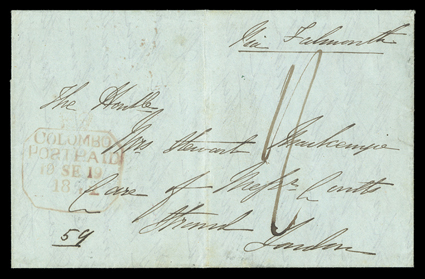 Via Falmouth
The Honble
Mrs Stewart Mackenzie
Care of Messrs Coutts
Strand
London
COLOMBO
POST PAID
SE 19
59